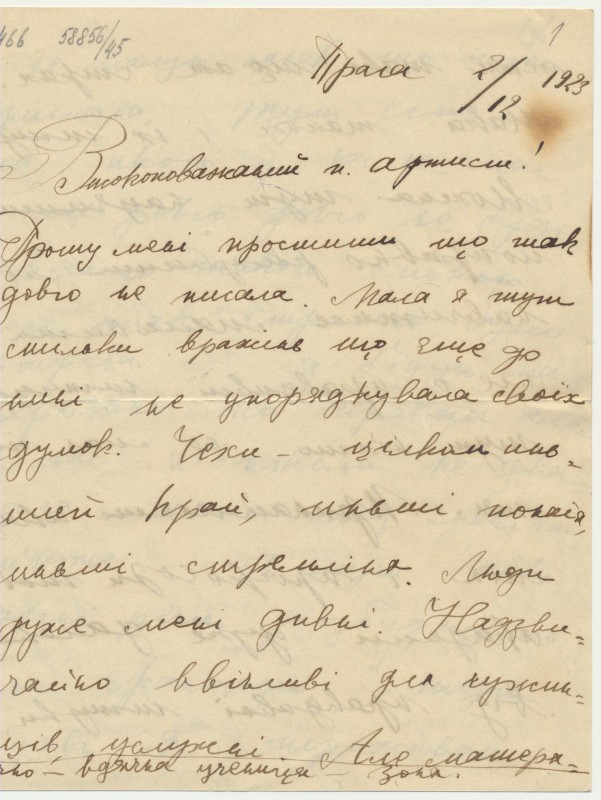 466 58856/45
1
Прага 2/12 1923
Високоповажаний п. артист!
Прошу мені простити що так
довго не писала. Мала я тут
стільки вражінь що еще до
нині не упорядкувала своїх
думок. Чехи – цілком инь=
ший край, иньші поняття,
иньші стремління. Люди
дуже мені дивні. Надзви=
чайно ввічливі для чужин=
ців, услужні Але матерія=
– вдячна учениця – Зоня.